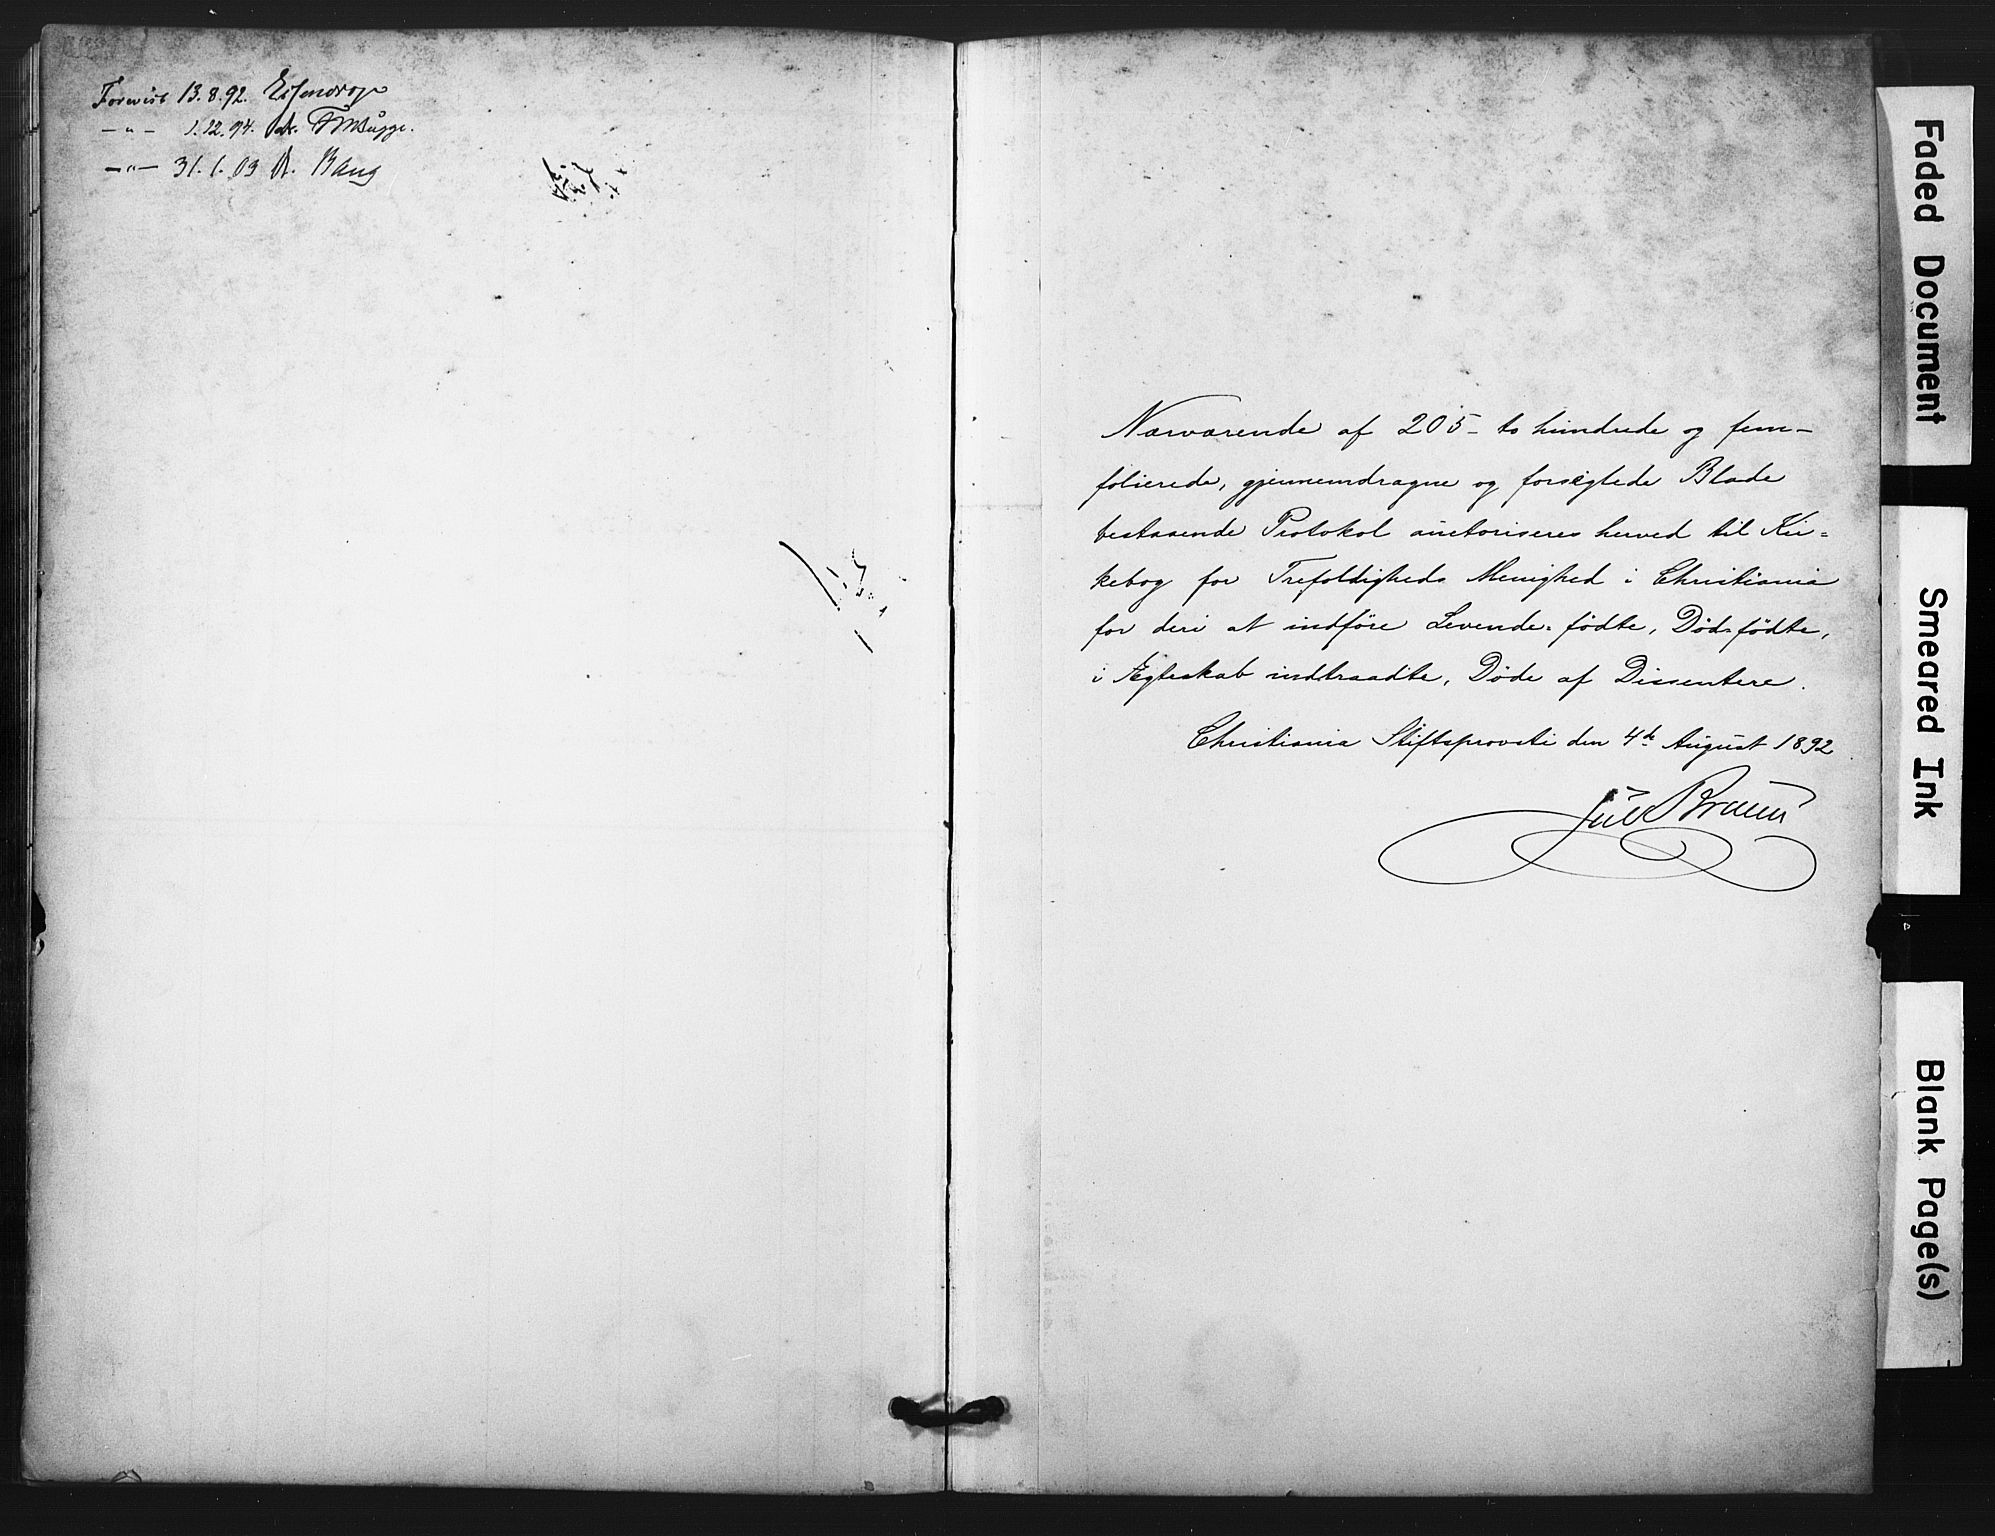 Forevist 13.8.92. Essendrop
–"– 1.12.94. F.W. Bugge.
–"– 31.1.03 A. Bang
Nærværende af 205 – to hundrede og fem –
folierede, gjennemdragne og forseglede Blade
bestaaende Protokol auctoriseres herved til Kir=
kebog for Trefoldigheds Menighed i Christiania
for deri at indføre Levende-fødte, Død-fødte,
i Ægteskab indtraadte, Døde af Dissentere.
Christiania Stiftsprovsti den 4de August 1892
Jul Bruun
Faded Document
Smeared Ink
Blank Page(s)